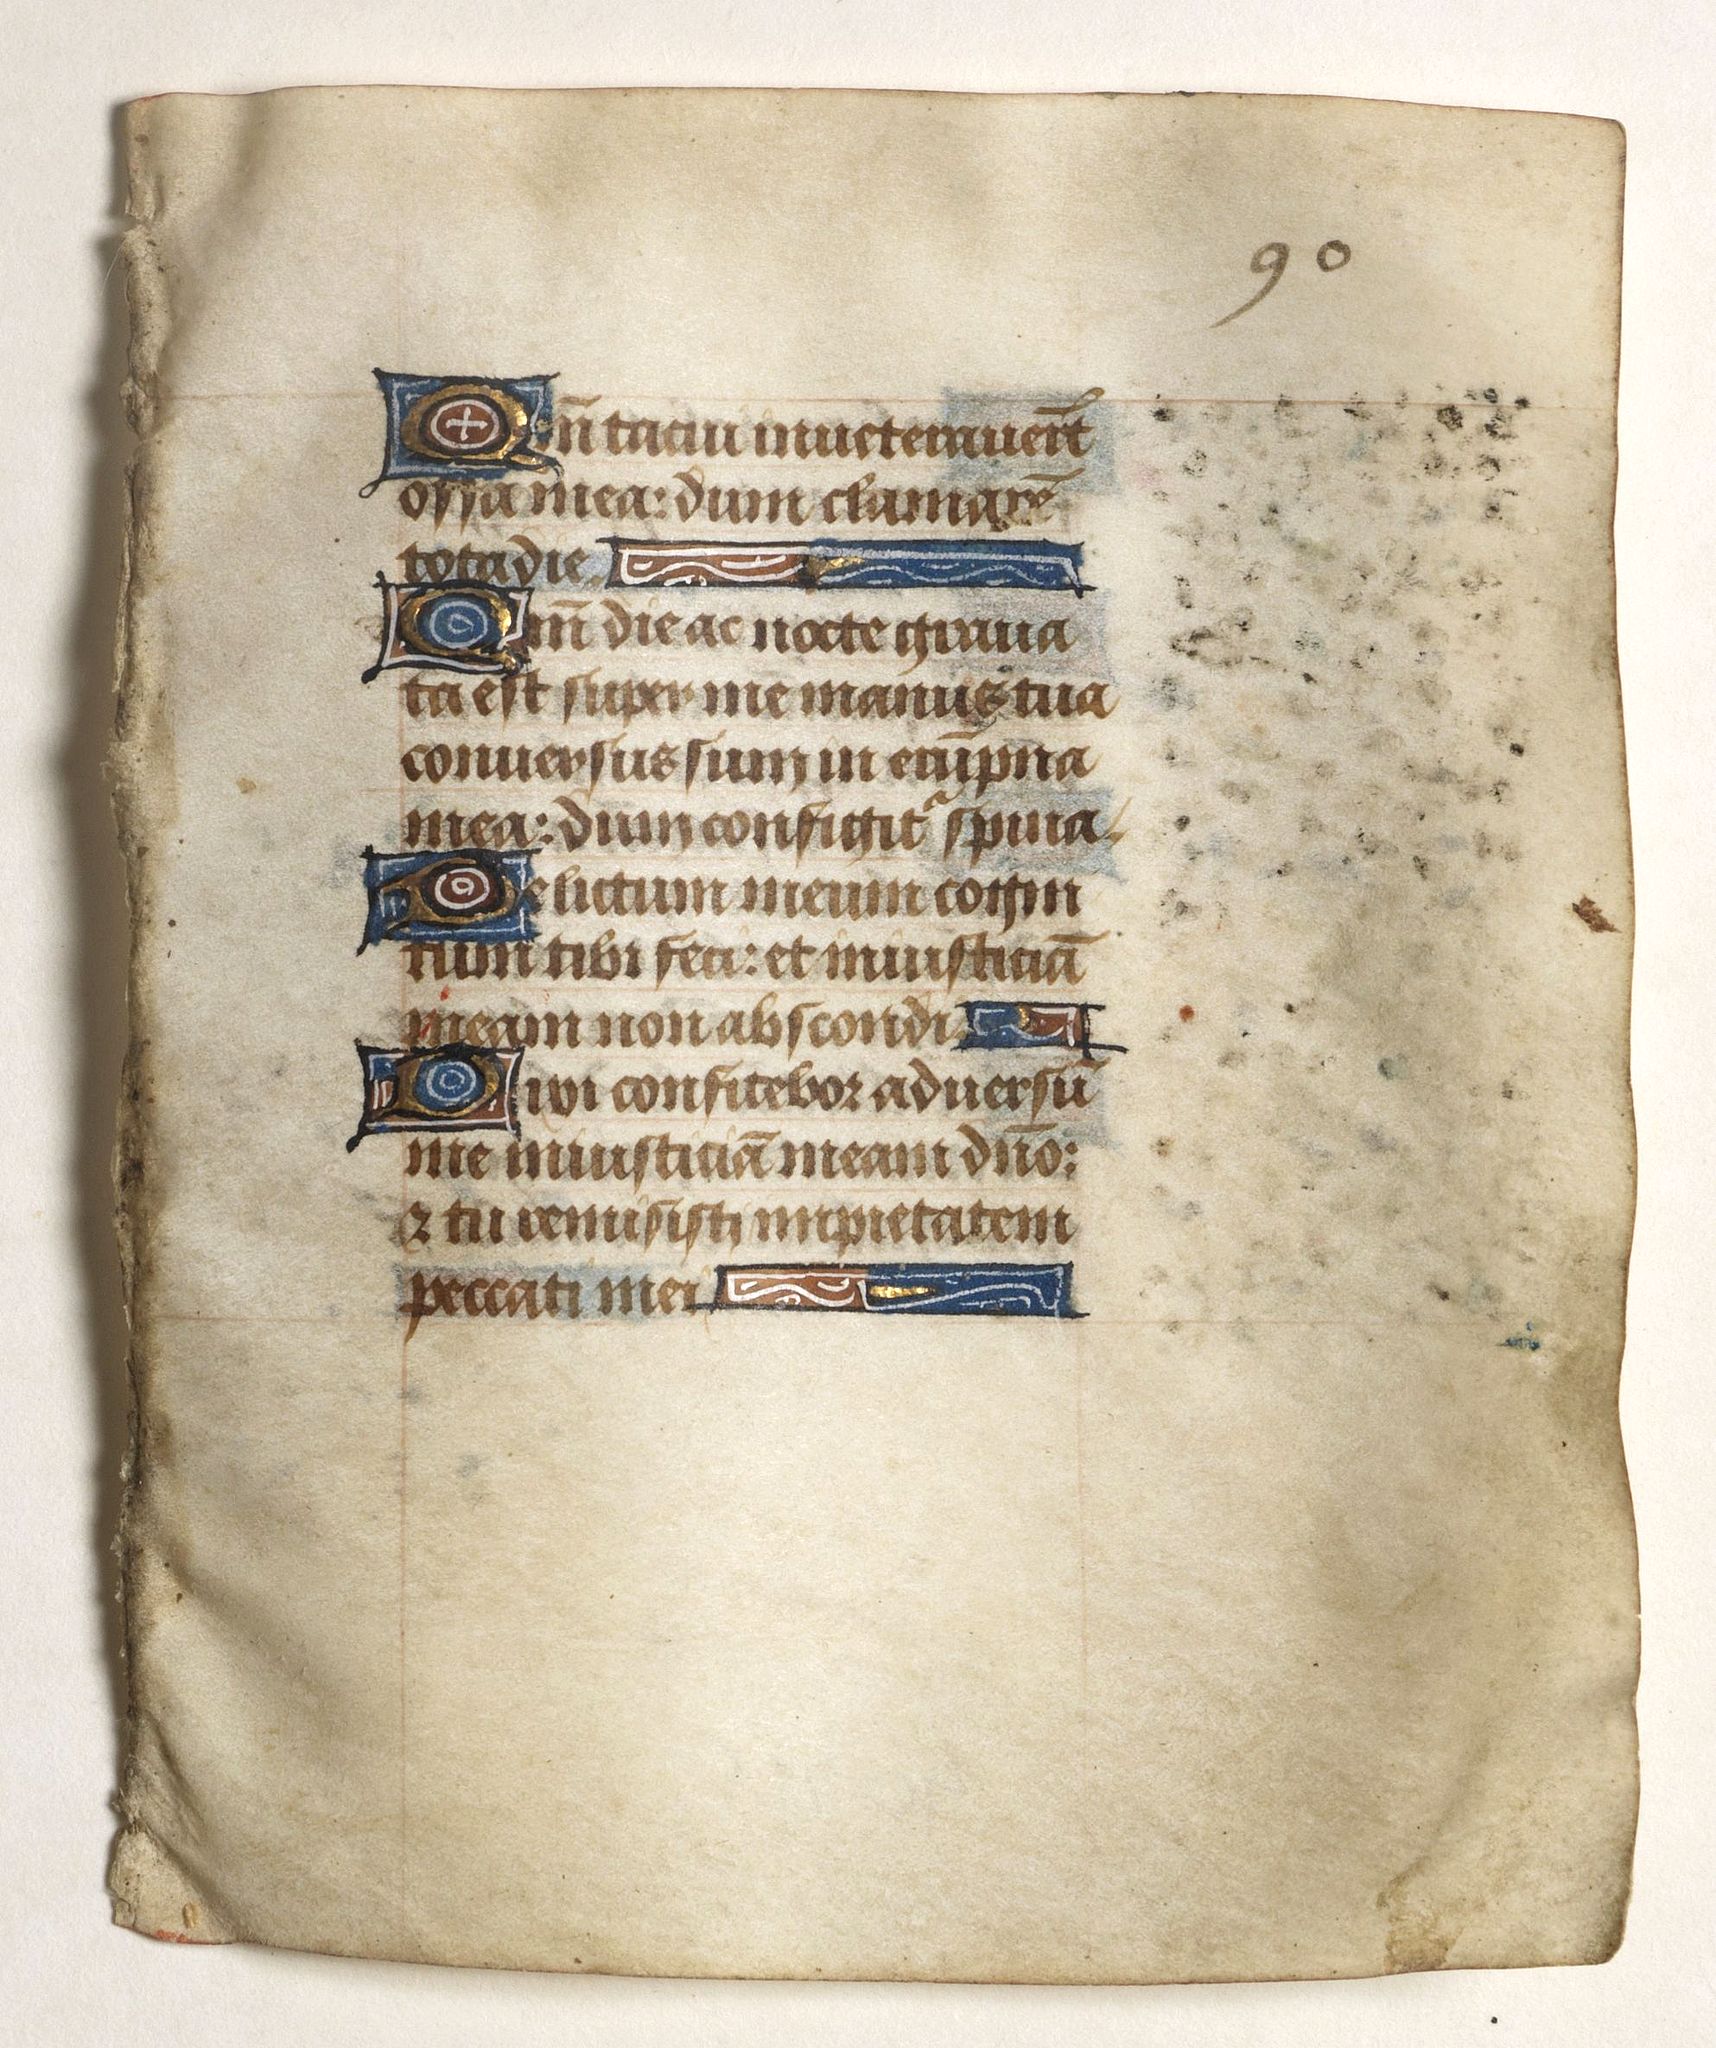 90
Qm̄ tacui inueterauerūt
ossa mea: dum clamarē
tota die
Qm̄ die ac nocte graua
ta est super me manus tua
conuersus sum in erūpna
mea: dum configitr spina.
Delictum meum cogni
tum tibi feci: et iniusticiā
meam non abscondi.
Dixi confitebor aduersū
me iniusticiā meam dn̄o:
⁊ tu remisisti impietatem
peccati mei